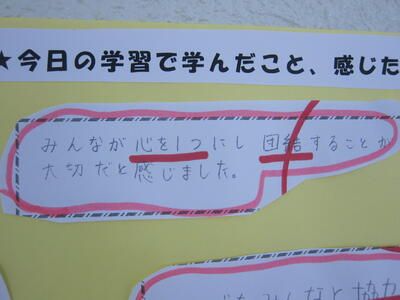 ★今日の学習で学んだこと、感じた
みんなが心を1つにし団結することが
大切だと感じました。
みんなと協力